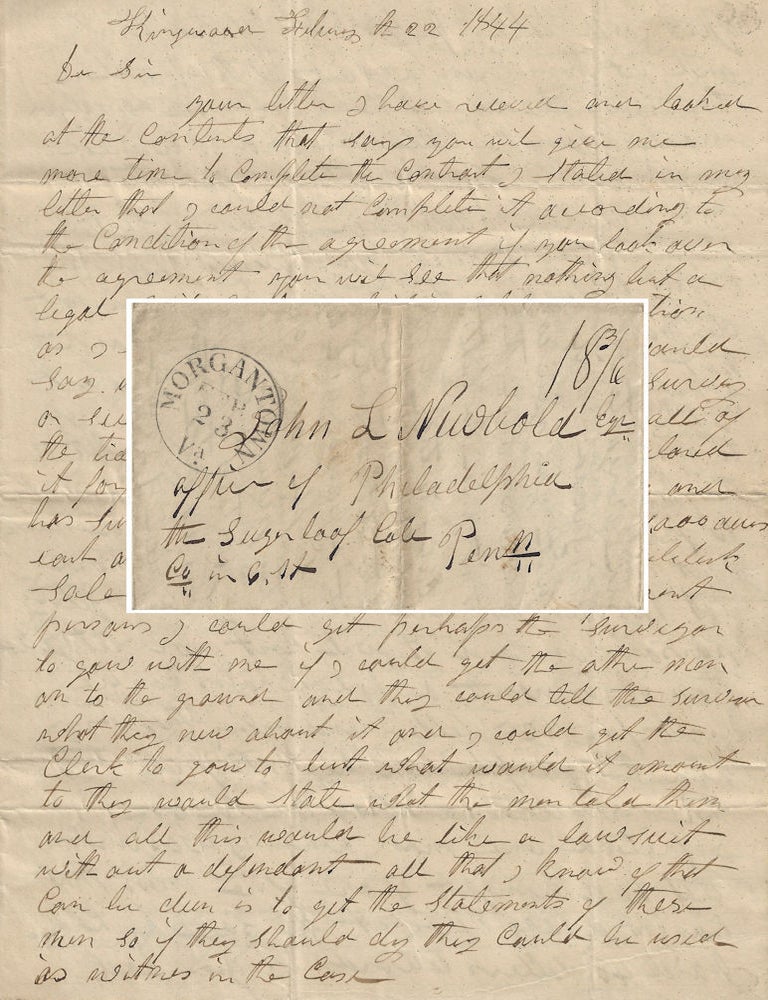 Kingwood Februy th 22 1844
Dr Sir
your letter I have receved and looked
at the Contents that says you wil give me
more time to Complete the Contract I stated in my
letter that I could not Complete it according to
the Condition of the agreement if you look over
the agreement you wil see that nothing but a
legal
as I would
say survey
or see all of
the
it for and
has 000 acres
Sale
persons I could get perhaps the Surveyor
to gow with me if I could get the othe men
on to the ground and they could till the survior
what they new about it and I could get the
Clerk to gow to but what would it amount
to they would state what the men told them
and all this would be like a lawsuit
without a defendant all that I know of that
Can be dun is to get the Statements of these
men so if they should dy they Could be used
as witnes in the Case
MORGANTOWN Va.
FEB 23
18 3/4
John L Newbold Esqr
office of Philadelphia
the Sugerloaf Cole Penn
Co in 6. St